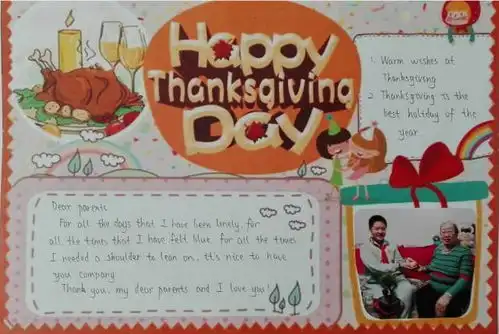 Happy
Thanksgiving
Day
1. Warm wishes at
Thanksgiving
2. Thanksgiving is the
best holiday of the
year
Dear parents
For all the days that I have been lonely, for
all the times that I have felt blue. for all the times
I needed a shoulder to lean on, it's nice to have
you company
Thank you, my dear parents and I love you!